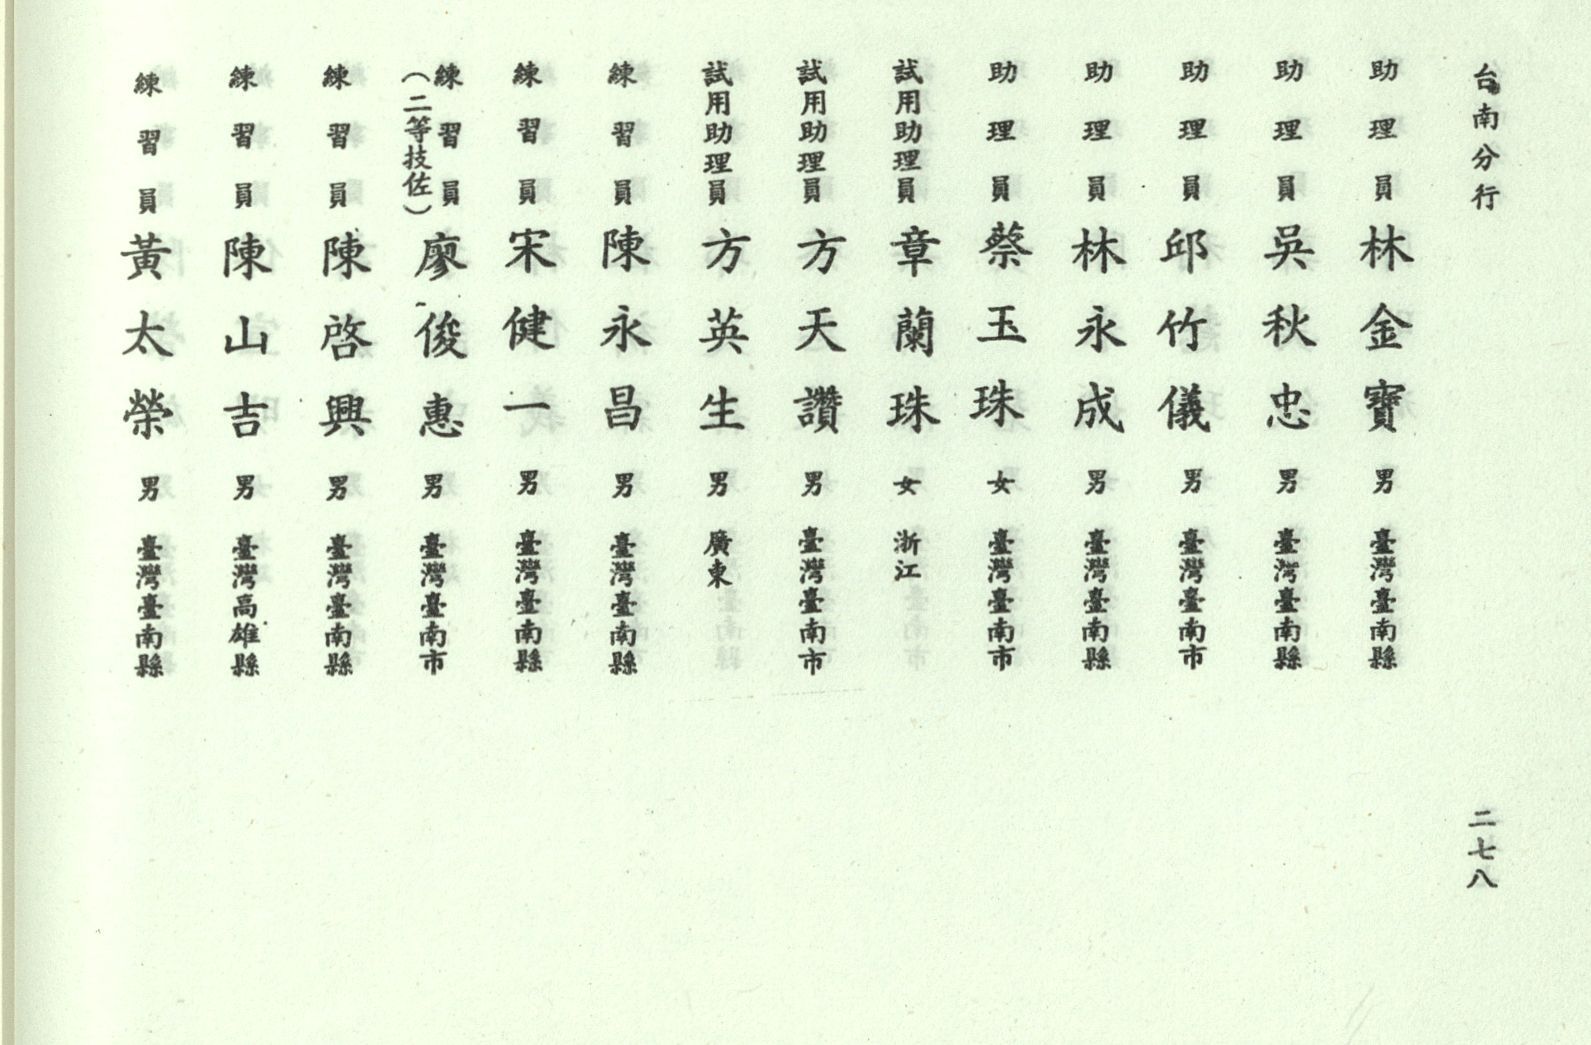 台南分行
二七八
助理員 林金寶 男 臺灣臺南縣
助理員 吳秋忠 男 臺灣臺南縣
助理員 邱竹儀 男 臺灣臺南市
助理員 林永成 男 臺灣臺南縣
助理員 蔡玉珠 女 臺灣臺南市
試用助理員 章蘭珠 女 浙江
試用助理員 方天讚 男 臺灣臺南市
試用助理員 方英生 男 廣東
練習員 陳永昌 男 臺灣臺南縣
練習員 宋健一 男 臺灣臺南縣
練習員 廖俊惠 男 臺灣臺南市
（二等技佐）
練習員 陳啓興 男 臺灣臺南縣
練習員 陳山吉 男 臺灣高雄縣
練習員 黃太榮 男 臺灣臺南縣